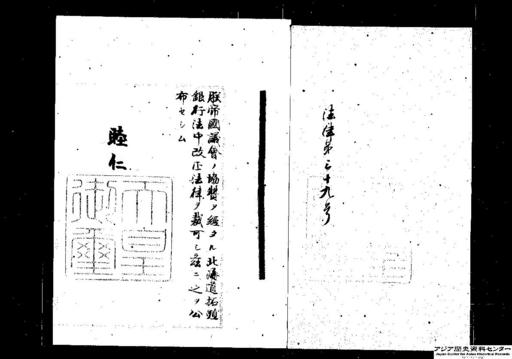 法律第三十九号
朕帝國議會ノ協贊ヲ經タル北海道拓殖
銀行法中改正法律ヲ裁可シ茲ニ之ヲ公
布セシム
睦仁
天皇
御璽
アジア歴史資料センター
Japan Center for Asian Historical Records